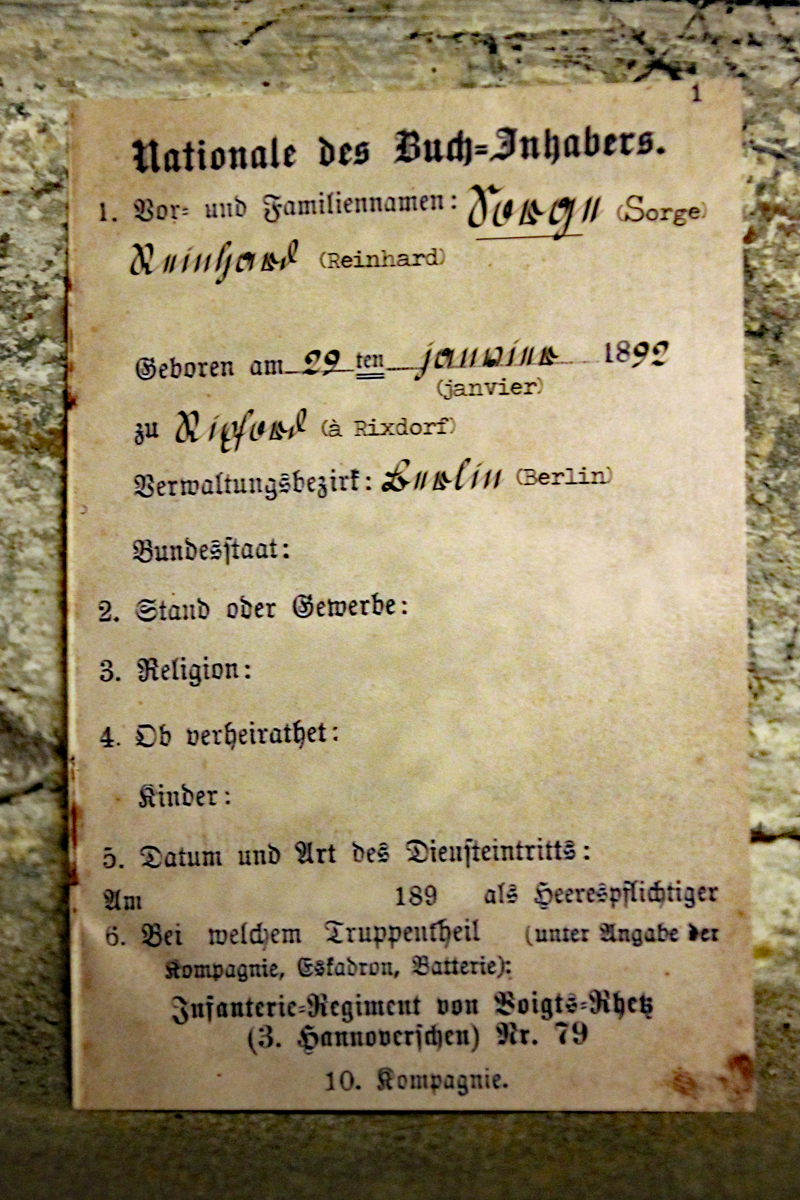 1
Nationale des Buch=Inhabers.
1. Vor= und Familiennamen: Sorge (Sorge)
Reinhard (Reinhard)
Geboren am 29 ten januier 1892
(janvier)
zu Rixdorf (à Rixdorf)
Verwaltungsbezirk: Berlin (Berlin)
Bundesstaat:
2. Stand oder Gewerbe:
3. Religion:
4. Ob verheirathet:
Kinder:
5. Datum und Art des Diensteintritts:
Am 189 als Heerespflichtiger
6. Bei welchem Truppentheil (unter Angabe der
Kompagnie, Eskadron, Batterie):
Infanterie=Regiment von Voigts=Rhetz
(3. Hannoverschen) Nr. 79
10. Kompagnie.